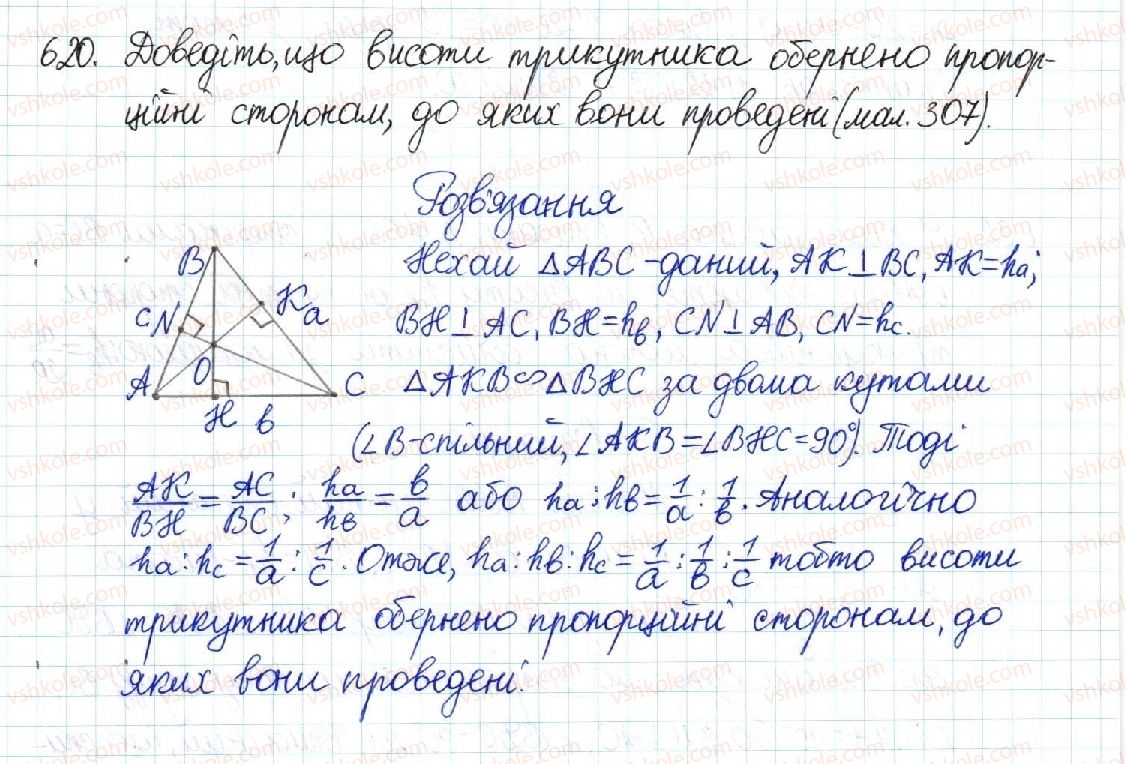 620. Доведіть, що висоти трикутника обернено пропор-
ційні сторонам, до яких вони проведені (мал. 307).
Розв'язання
Нехай △ABC - даний, AK⊥BC, AK=ha;
BH⊥AC, BH=hв, CN⊥AB, CN=hc.
△AKB∽△BHC за двома кутами
(∠B-спільний, ∠AKB=∠BHC=90°). Тоді
AK/BH = AC/BC; ha/hв = в/a або ha:hв = 1/a : 1/в. Аналогічно
ha:hc = 1/a : 1/c. Отже, ha:hв:hc = 1/a : 1/в : 1/c тобто висоти
трикутника обернено пропорційні сторонам, до
яких вони проведені.
B
c N
K a
O
A
C
H в
vshkole.com